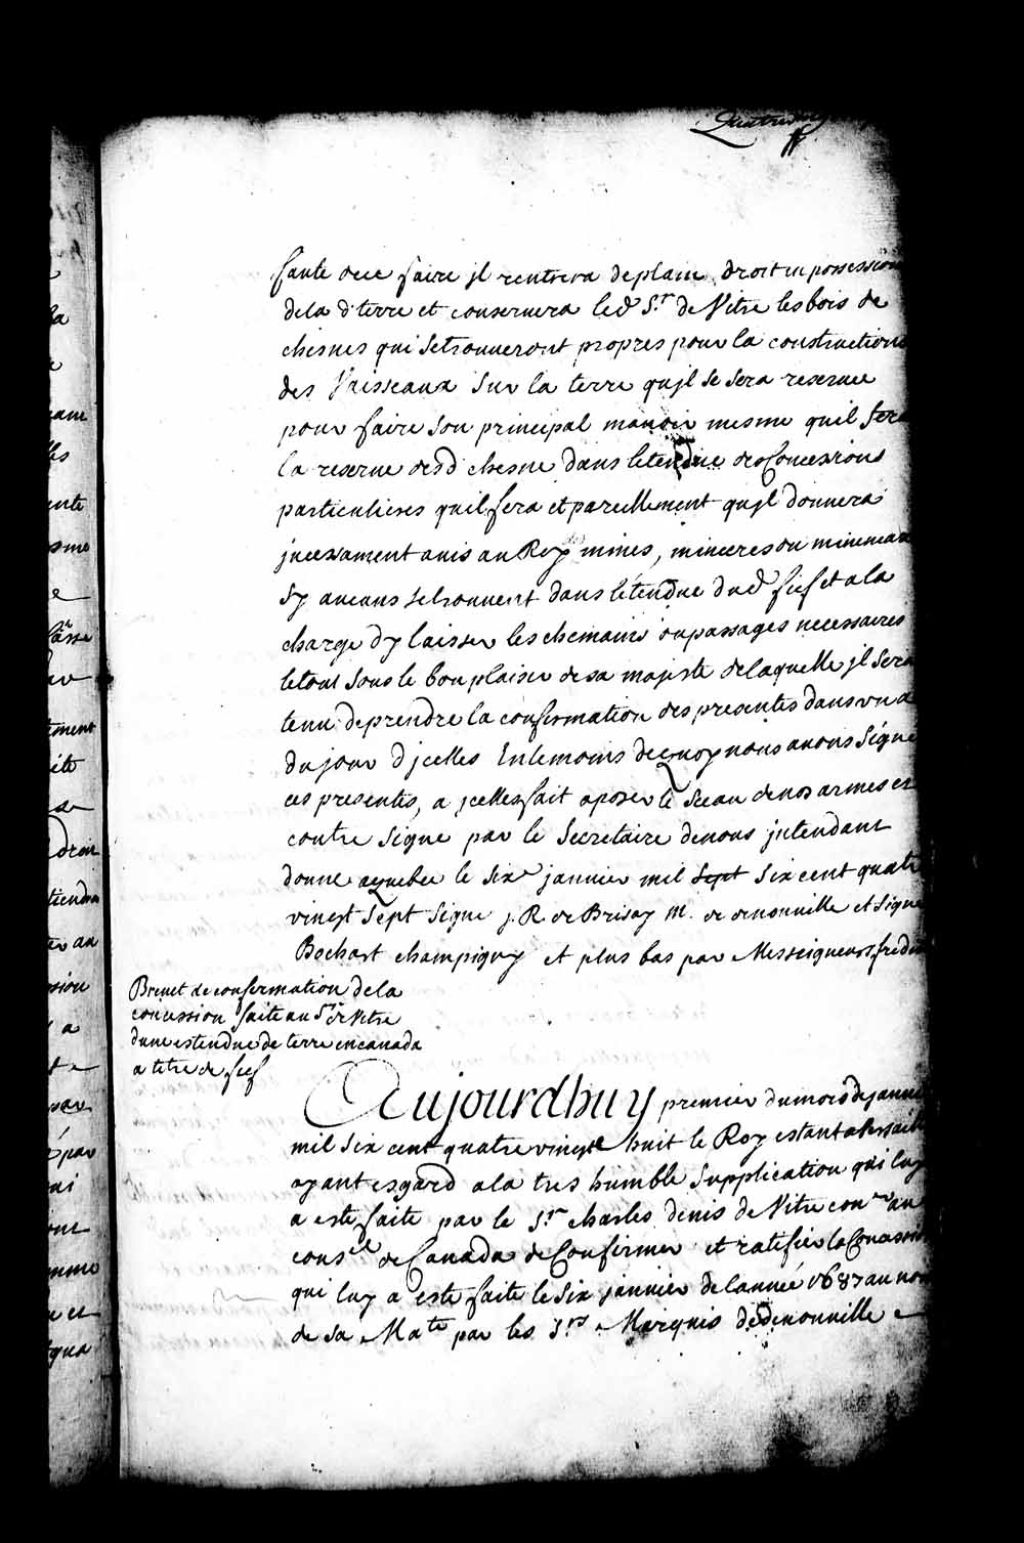 faute de ce faire jl rentrera de plain droit en possession
de la d. terre et conservera led. S.r de Vitre les bois de
chesnes qui se trouveront propres pour la construction
des Vaisseaux Sur la terre qujl se sera reservee
pour faire son principal manoir mesme quil fera
la reserve desd chesne dans letendue des Concessions
particulieres quil fera et pareillement qujl donnera
jncessament avis au Roy mines, minieres ou mineraux
sy aucuns se trouvent dans létendue dud. fief et a la
charge d'y laisser les chemains ou passages necessaires
le tout sous le bon plaisir de sa majeste de laquelle jl sera
tenu de prendre la confirmation des presentes dans un a
du jour d'jcelles En temoins de quoy nous avons signé
ces presentes, a jcelles fait aposer le sceau de nos armes et
contre signe par le Secretaire de nous jntendant
donne a quebec le six.e janvier mil sept six cent quatre
vingt sept signe j. R. de Brisay M. de denonville et signe
Bochart champigny et plus bas par Messeigneurs, fredin
Brevet de confirmation de la
concession faite au S.r de Vitre
dune estendue de terre en canada
a titre de fief
Aujourdhuy premier du mois de janvie
mil six cent quatre vingt huit le Roy estant a Versaille
ayant esgard a la tres humble supplication qui luy
a este faite par le S.r charles denis de Vitre con.er au
cons.el de Canada de Confirmer et ratifier la Concession
qui luy a este faite le six janvier de l'année 1687 au nom
de sa Ma.te par les S.rs Marquis de denonville